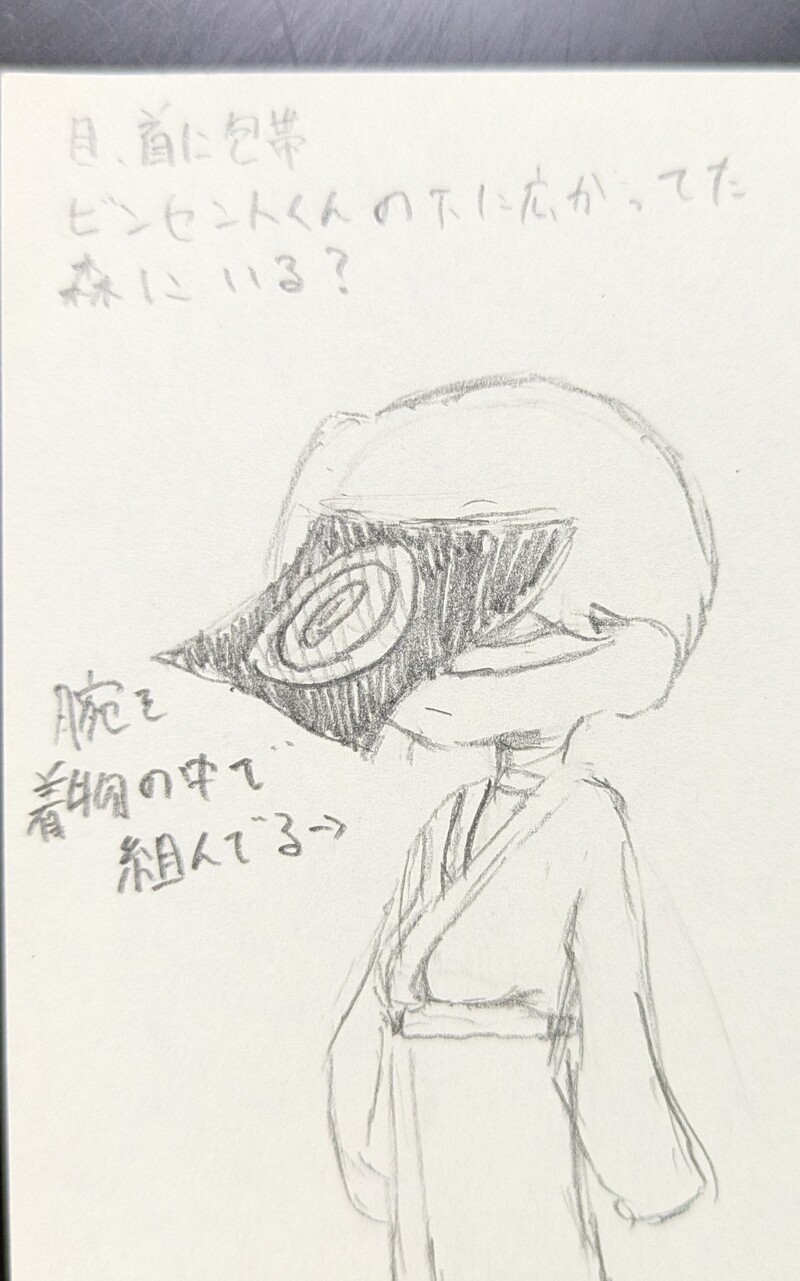 目、首に包帯
ビンセントくんの下に広がってた
森にいる?
腕を
着物の中で
組んでる→